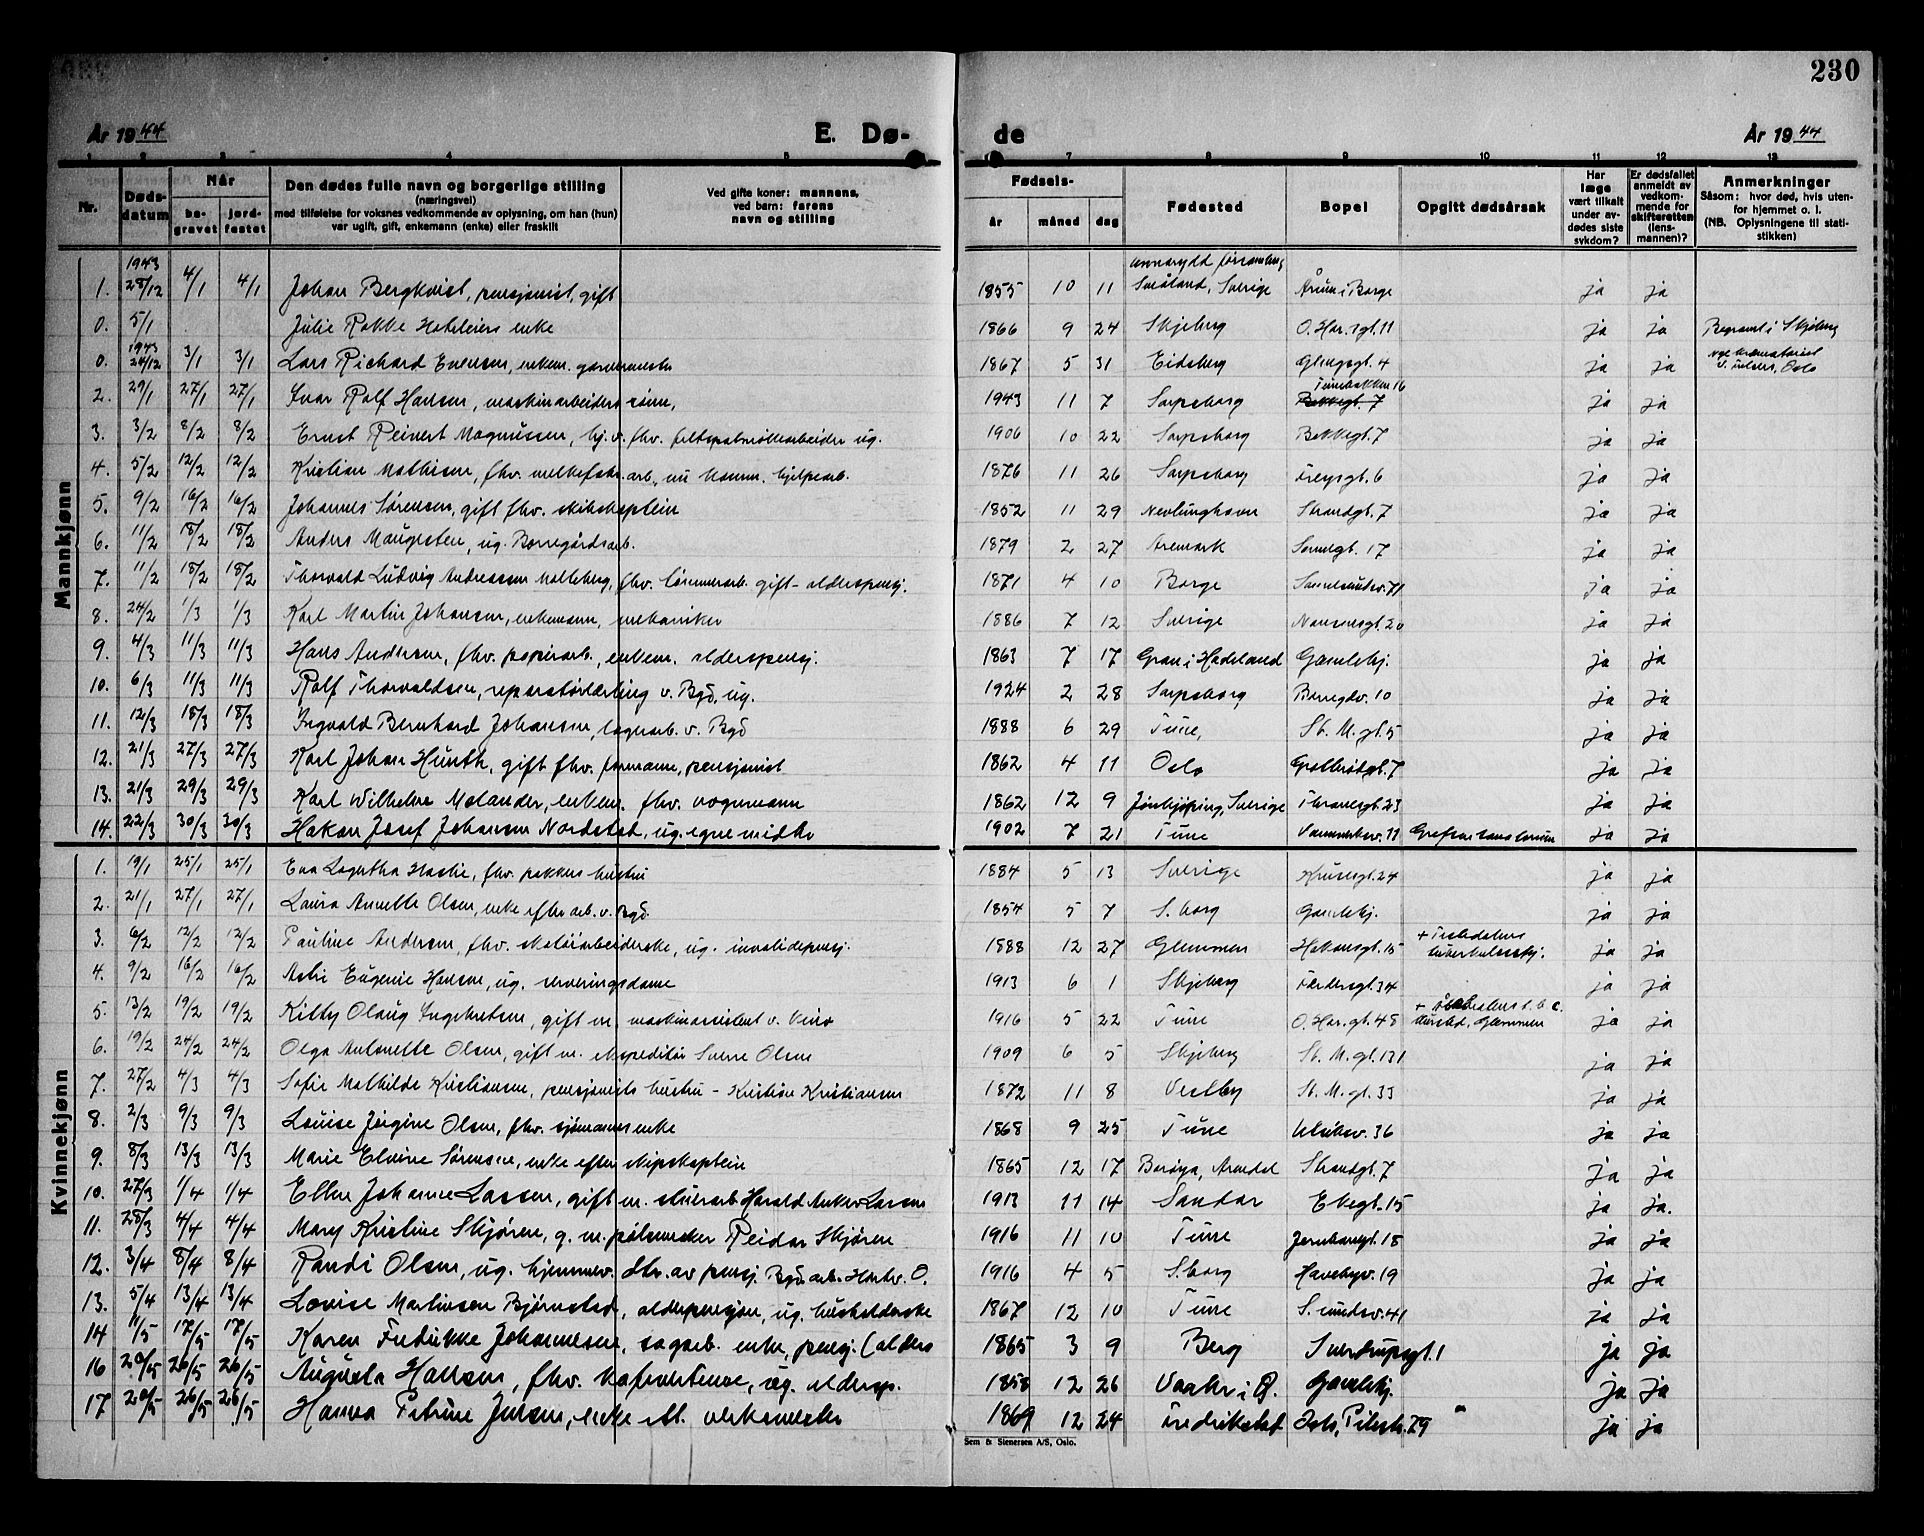 230
År 1944 E. Dø- de År 1944
1 2 3 4 5 7 8 9 10 11 12 13
Nr. Døds-datum Når be-gravet jord-festet Den dødes fulle navn og borgerlige stilling (næringsvei) med tilføielse for voksnes vedkommende av oplysning, om han (hun) var ugift, gift, enkemann (enke) eller fraskilt Ved gifte koner: mannens, ved barn: farens navn og stilling Fødsels- år måned dag Fødested Bopel Opgitt dødsårsak Har læge vært tilkalt under av-dødes siste sykdom? Er dødsfallet anmeldt av vedkom-mende for skifteretten (lens-mannen)? Anmerkninger Såsom: hvor død, hvis uten-for hjemmet o. l. (NB. Oplysningene til stati-stikken)
Mannkjønn
1. 1943 28/12 4/1 4/1 Johan Bergkvist, pensjonist, gift 1855 10 11 Småland, Sverige Årum i Borge ja ja
0. 5/1 Julie Rokke Hoteleiers enke 1866 9 24 Skjeberg O. Har.sgt. 11 ja ja Begravet i Skjeberg
0. 1943 24/12 3/1 3/1 Lars Richard Evensen, enkem. garvermester 1867 5 31 Eidsberg Glengsgt. 4 ja ja Oslo
2. 29/1 27/1 27/1 Ivar Rolf Hansen, maskinarbeiders sønn, 1943 11 7 Sarpsborg Tunebakken 16 Bekkegt. 7 ja ja
3. 3/2 8/2 8/2 Ernst Reinert Magnussen, hj.v. fhv. feltspatmøllearbeider ug. 1906 10 22 Sarpsborg Bekkegt. 7 ja ja
4. 5/2 12/2 12/2 Kristian Mathisen, fhv. melkefabr.arb., nu komm. hjelpearb. 1876 11 26 Sarpsborg Freysgt. 6 ja ja
5. 9/2 16/2 16/2 Johannes Sørensen, gift fhv. skibskaptein 1852 11 29 Nevlunghavn Strandgt. 7 ja ja
6. 11/2 18/2 18/2 Anders Maugesten, ug. Borregårdsarb. 1879 2 27 Aremark 17 ja ja
7. 11/2 18/2 18/2 Thorvald Ludvig Andreassen Molleberg, fhv. tømmerarb. gift - alderspensj. 1871 4 10 Borge Sandesundsv. 71 ja ja
8. 24/2 1/3 1/3 Karl Martin Johansen, enkemann, mekaniker 1886 7 12 Sverige Nansensgt. 20 ja ja
9. 4/3 11/3 11/3 Hans Andersen, fhv. papirarb., enkem. alderspensj. 1863 7 17 Gran i Hadeland Gamlehj. ja ja
10. 6/3 11/3 11/3 Rolf Thorvaldsen, reparatørlærling v. Bgd, ug. 1924 2 28 Sarpsborg Borregdv. 10 ja ja
11. 12/3 18/3 18/3 Ingvald Bernhard Johansen, lagerarb. v. Bgd 1888 6 29 Tune, St. M. gt. 5 ja ja
12. 21/3 27/3 27/3 Karl Johan Hunth, gift fhv. formann, pensjonist 1862 4 11 Oslo 7 ja ja
13. 21/3 29/3 29/3 Karl Wilhelm Molander, enkem. fhv. vognmann 1862 12 9 Jönköping, Sverige Thranesgt. 23 ja ja
14. 22/3 30/3 30/3 Hakon Josef Johansen Nordstad, ug. egne midler 1902 7 21 Tune 11 Grefsen sanatorium ja ja
Kvinnekjønn
1. 19/1 25/1 25/1 Eva Lagertha fhv. pakkers hustru 1884 5 13 Sverige Krusesgt. 24 ja ja
2. 21/1 27/1 27/1 Laura Annette Olsen, enke efter arb. v. Bgd. 1854 5 7 S.borg Gamlehj. ja ja
3. 6/2 12/2 12/2 Pauline Andersen, fhv. skotøiarbeiderske, ug. invalidepensj. 1888 12 27 Glemmen Hakonsgt. 15 + tuberkulosehj. ja ja
4. 9/2 16/2 16/2 Eugenie Hansen, ug. serveringsdame 1913 6 1 Skjeberg Færdersgt. 34 ja ja
5. 13/2 19/2 19/2 Kitty Olaug Ingebretsen, gift m. maskinassistent v. kino 1916 5 22 Tune O. Har. gt. 48 Glemmen ja ja
6. 19/2 24/2 24/2 Olga Antonette Olsen, gift m. ekspeditør Sverre Olsen 1909 6 5 Skjeberg St. M. gt. 131 ja ja
7. 27/2 4/3 4/3 Sofie Mathilde Kristiansen, pensjonists hustru - Kristian Kristiansen 1872 11 8 Vestby St. M. gt. 33 ja ja
8. 2/3 9/3 9/3 Louise Jørgine Olsen, fhv. sjømanns enke 1868 9 25 Tune Utsiktsv. 36 ja ja
9. 8/3 13/3 13/3 Marie Elvine Sørensen, enke efter skipskaptein 1865 12 17 Borøya, Arendal Strandgt. 7 ja ja
10. 27/3 1/4 1/4 Ellen Johanne Lassen, gift m. stuerarb Harald Anker Larsen 1913 11 14 Sandar Ekegt. 15 ja ja.
11. 28/3 4/4 4/4 Mary Kristine Skjøren, g. m. pølsemaker Reidar Skjøren 1916 11 10 Tune Jernbanegt. 18 ja ja
12. 3/4 8/4 8/4 Randi Olsen, ug. hjemmev. dtr. av pensj. Bgd. arb. O. 1916 4 5 S.borg Havebyv. 19 ja ja
13. 5/4 13/4 13/4 Lovise Martinsen Bjørnstad, alderpensjon, ug. husholderske 1867 12 10 Tune S.sundsv. 41 ja ja
14 11/5 17/5 17/5 Karen Fredrikke Johannesen, sagarb. enke, pensj. (alders 1865 3 9 Berg Sverdrupsgt. 1 ja ja
16 20/5 26/5 26/5 Augusta Hansen, fhv. kafévertinne, ug. aldersp. 1858 12 26 Vaaler i Ø. Gamlehj. ja ja
17 20/5 26/5 26/5 Hanna Petrine Jensen, enke ett. verksmester 1869 12 24 Fredrikstad 79 ja ja
Sem & Stenersen A/S, Oslo.